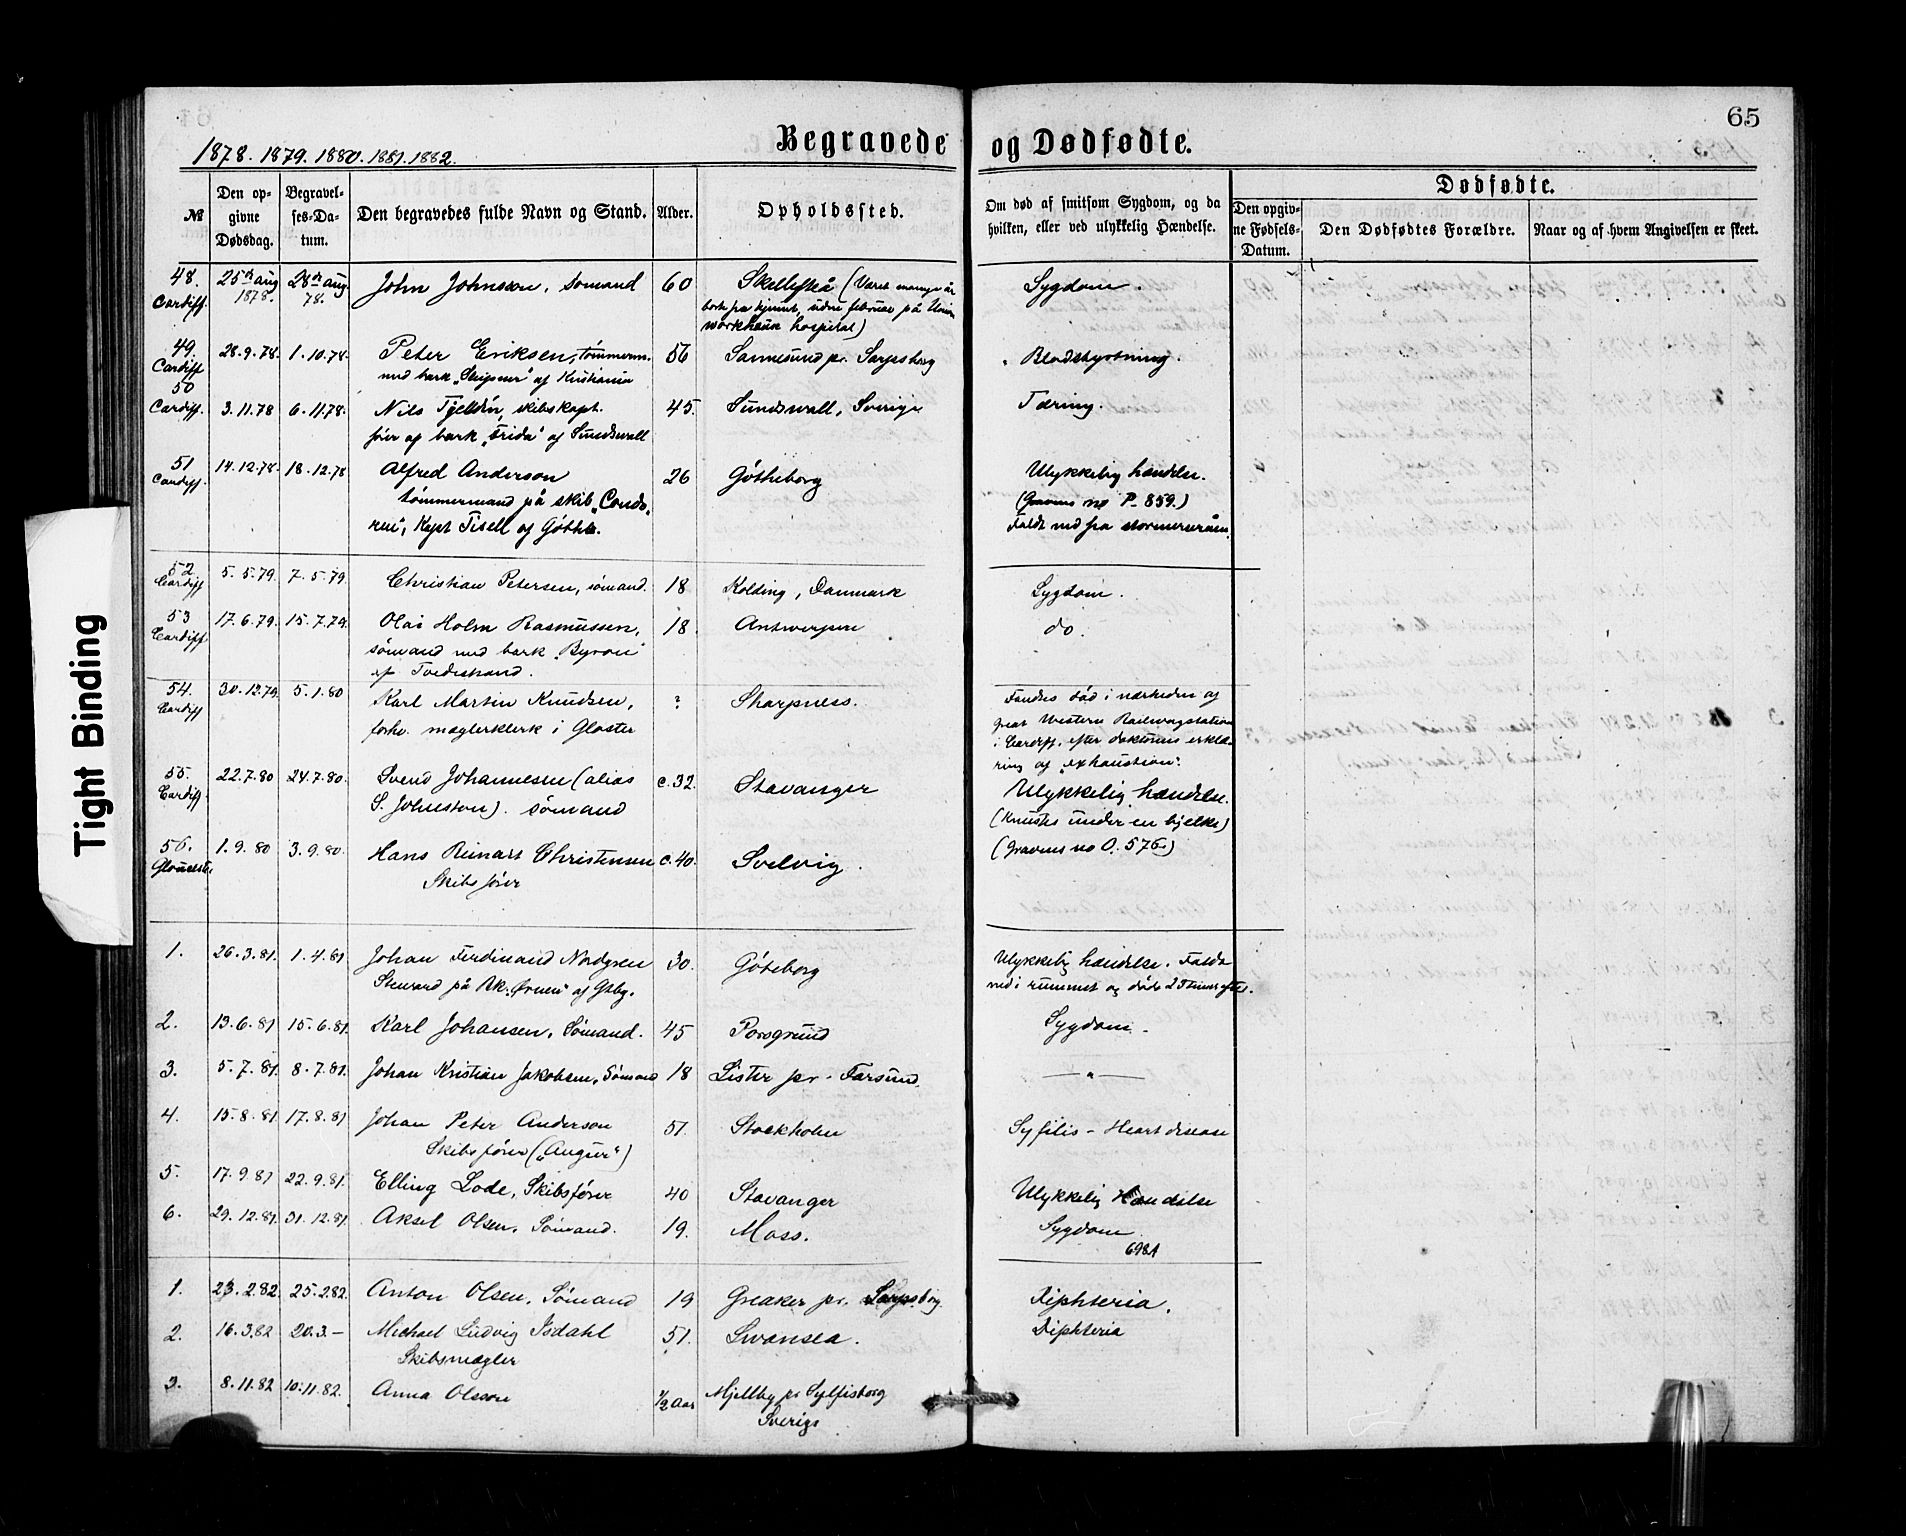 65
Begravede og Dødfødte.
1878. 1879. 1880. 1881. 1882.
№
Den opgivne Dødsdag.
Begravelses-Datum.
Den begravedes fulde Navn og Stand.
Alder.
Opholdssted.
Om død af smitsom Sygdom, og da hvilken, eller ved ulykkelig Hændelse.
Dødfødte.
Den opgivne Fødsels-Datum.
Den Dødfødtes Forældre.
Naar og af hvem Angivelsen er skeet.
48. Cardiff. 25de aug 1878. 28de aug. 78. John Johnsson, sømand 60 Skellefteå (Været mange år
borte fra hjemmet, siden februar på Union
workhouse hospital) Sygdom.
49. Cardiff 28.9.78. 1.10.78. Peter Eriksen, tømmerm. 56 Sannesund pr. Sarpsborg Blodstyrtning.
med bark „Skipner" af Kristiania
50 Cardiff. 3.11.78 6.11.78. Nils Tjelldén, skibskapt. 45. Sundswall, Sverige Tæring.
fører af bark „Frida" af Sundswall
51 Cardiff. 14.12.78. 18.12.78 Alfred Anderson 26 Götheborg Ulykkelig hændelse.
tømmermand på skib „Condo-
ren", Kapt Tisell af Göthb.
(Gravens no P. 859.)
Faldt ned fra stormerseråen.
52. Cardiff 5.5.79. 7.5.79. Christian Petersen, sømand. 18 Kolding, Danmark Sygdom.
53 Cardiff 17.6.79. 15.7.79. Olai Holm Rasmussen, 18. Antwerpen do.
sømand med bark „Byron"
af Tvedestrand.
54. Cardiff 30.12.79. 5.1.80 Karl Martin Knudsen, ? Sharpness.
forhv. mæglerklerk i Gloster
Fandtes død i nærheden af
great Western Railwaystation
i Cardiff, efter doktorens erklæ-
ring af „exhaustion".
55. Cardiff 22.7.80 24.7.80. Svend Johannesen (alias c. 32. Stavanger Ulykkelig hændelse.
S. Johnston). sømand
(Knustes under en bjelke)
(Gravens no O. 576)
56. Gloucester 1.9.80 3.9.80. Hans Reinart Christensen c. 40. Svelvig.
Skibsfører
1. 26.3.81. 1.4.81 Johan Ferdinand Nordgren 30. Göteborg Ulykkelig hændelse. Faldt
Steward på Bk. „Ørnen" af Gtbg. ned i rummet og døde 2 Timer efter.
2. 13.6.81 15.6.81. Karl Johansen, Sømand. 45 Porsgrund Sygdom.
3. 5.7.81. 8.7.81. Johan Kristian Jakobsen, Sømand 18 Lister pr. Farsund. — " —
4. 15.8.81. 17.8.81 Johan Peter Anderson 51. Stockholm Syfilis - Heart disease
Skibsfører („Augur")
5. 17.9.81 22.9.81. Elling Lode, Skibsfører 40 Stavanger Ulykkelig Hændelse
6. 29.12.81. 31.12.81. Aksel Olsen, Sømand. 19. Moss. Sygdom
698A
1. 23.2.82 25.2.82. Anton Olsen, Sømand 19 Greaker pr. Sarpsborg Diphteria.
2. 16.3.82 20.3.— Michael Ludvig Isdahl 51. Swansea. Diphteria
Skibsmægler
3. 8.11.82 10.11.82. Anna Olsson ½ Aar Mjellby pr Sylfisborg
Sverige
Tight Binding